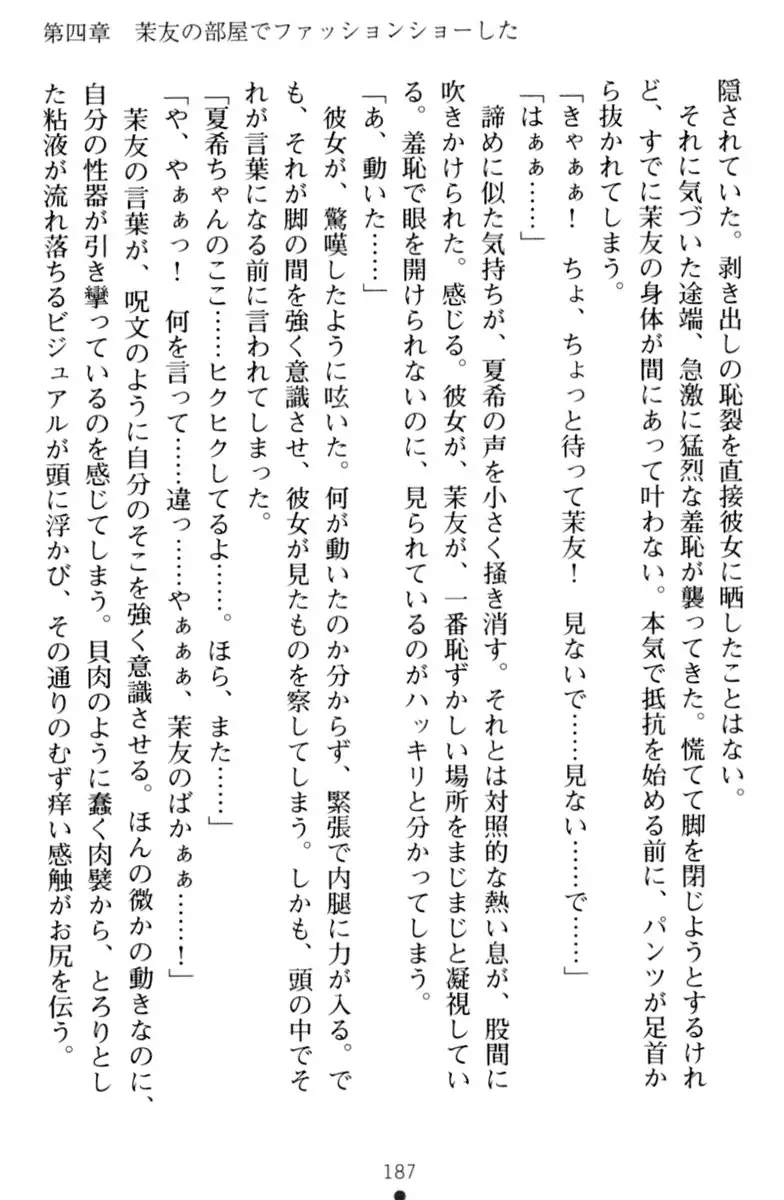 第四章　茉友の部屋でファッションショーした
隠されていた。剥き出しの恥裂を直接彼女に晒したことはない。
　それに気づいた途端、急激に猛烈な羞恥が襲ってきた。慌てて脚を閉じようとするけれ
ど、すでに茉友の身体が間にあって叶わない。本気で抵抗を始める前に、パンツが足首か
ら抜かれてしまう。
「きゃぁぁ！　ちょ、ちょっと待って茉友！　見ないで……見ない……で……」
「はぁぁ……」
　諦めに似た気持ちが、夏希の声を小さく掻き消す。それとは対照的な熱い息が、股間に
吹きかけられた。感じる。彼女が、茉友が、一番恥ずかしい場所をまじまじと凝視してい
る。羞恥で眼を開けられないのに、見られているのがハッキリと分かってしまう。
「あ、動いた……」
　彼女が、驚嘆したように呟いた。何が動いたのか分からず、緊張で内腿に力が入る。で
も、それが脚の間を強く意識させ、彼女が見たものを察してしまう。しかも、頭の中でそ
れが言葉になる前に言われてしまった。
「夏希ちゃんのここ……ヒクヒクしてるよ……。ほら、また……」
「や、やぁぁっ！　何を言って……違っ……やぁぁぁ、茉友のばかぁぁ……！」
　茉友の言葉が、呪文のように自分のそこを強く意識させる。ほんの微かの動きなのに、
自分の性器が引き攣っているのを感じてしまう。貝肉のように蠢く肉襞から、とろりとし
た粘液が流れ落ちるビジュアルが頭に浮かび、その通りのむず痒い感触がお尻を伝う。
187